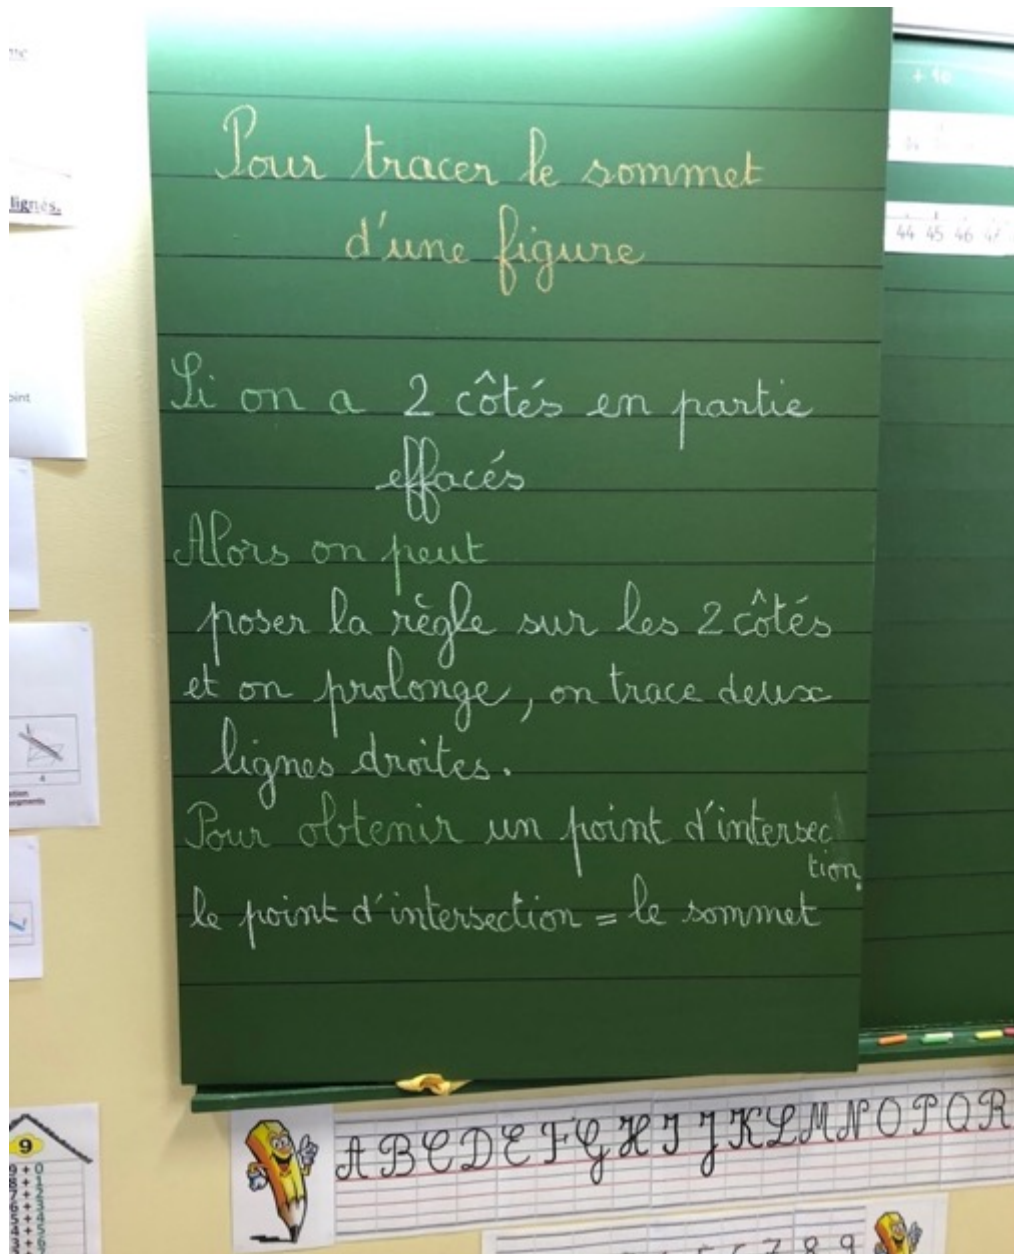 Pour tracer le sommet
d'une figure
Si on a 2 côtés en partie
effacés
Alors on peut
poser la règle sur les 2 côtés
et on prolonge, on trace deux
lignes droites.
Pour obtenir un point d'intersec
tion.
le point d'intersection = le sommet
+ 10
44 45 46 47
lignés.
oint
4
9
A B C D E F G H I J K L M N O P Q R
7 8 9